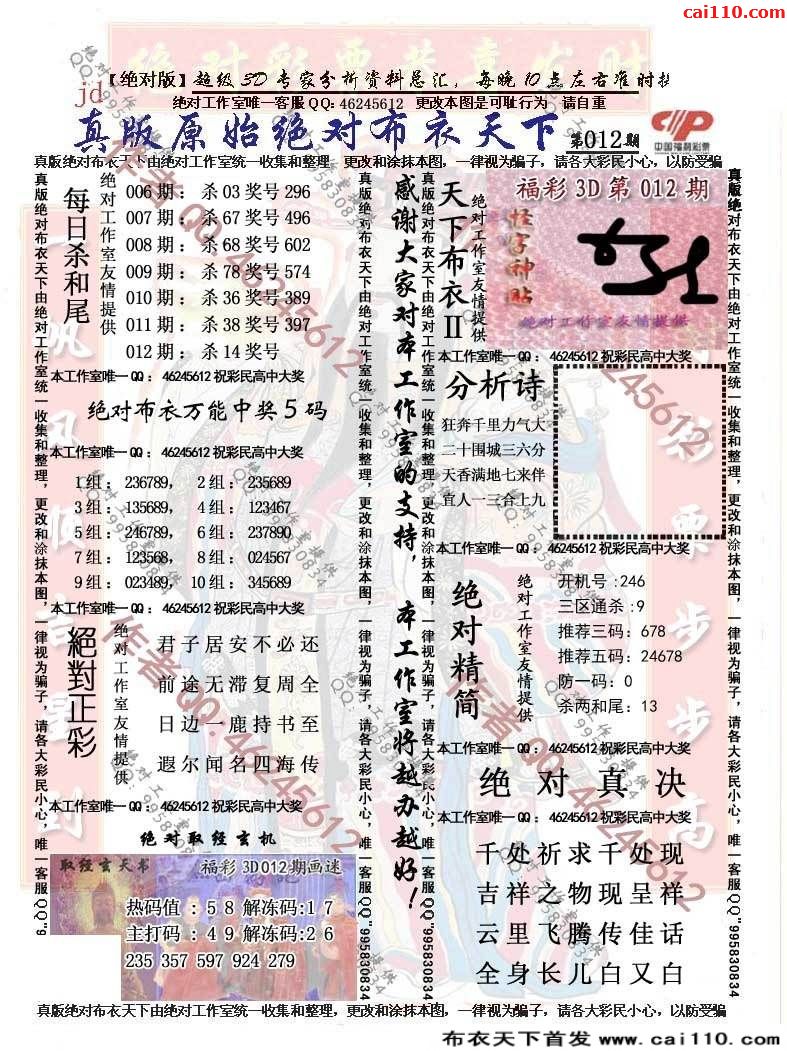 cai110.com
【绝对版】超级3D专家分析资料总汇，每晚10点左右准时
jd
绝对工作室唯一客服QQ:46245612 更改本图是可耻行为 请自重
真版原始绝对布衣天下 第012期
中国福利彩票
真版绝对布衣天下由绝对工作室统一收集和整理，更改和涂抹本图，一律视为骗子，请各大彩民小心，以防受骗
真版绝对布衣天下由绝对工作室统一收集和整理，更改和涂抹本图，一律视为骗子，请各大彩民小心，唯一客服QQ"9
每日杀和尾
绝对工作室友情提供
006期：杀03奖号296
007期：杀67奖号496
008期：杀68奖号602
009期：杀78奖号574
010期：杀36奖号389
011期：杀38奖号397
012期：杀14奖号
本工作室唯一QQ：46245612祝彩民高中大奖
绝对布衣万能中奖5码
本工作室唯一QQ：46245612祝彩民高中大奖
1组：236789， 2组：235689
3组：135689， 4组：123467
5组：246789， 6组：237890
7组：123568， 8组：024567
9组：023489， 10组：345689
本工作室唯一QQ：46245612祝彩民高中大奖
絕對正彩
绝对工作室友情提供
君子居安不必还
前途无滞复周全
日边一鹿持书至
遐尔闻名四海传
本工作室唯一QQ：46245612祝彩民高中大奖
绝对取经玄机
取经玄天书
福彩3D012期画迷
热码值：58解冻码：17
主打码：49解冻码：26
235 357 597 924 279
真版绝对布衣天下由绝对工作室统一收集和整理，更改和涂抹本图，一律视为骗子，请各大彩民小心，唯一客服QQ"995830834
感谢大家对本工作室的支持，本工作室将越办越好！
真版绝对布衣天下由绝对工作室统一收集和整理，更改和涂抹本图，一律视为骗子，请各大彩民小心，唯一客服QQ"995830834
天下布衣II
绝对工作室友情提供
福彩3D第012期
怪字神贴
绝对工作室友情提供
本工作室唯一QQ：46245612祝彩民高中大奖
分析诗
狂奔千里力气大
二十围城三六分
天香满地七来伴
宜人一三合上九
本工作室唯一QQ：46245612祝彩民高中大奖
绝对精简
绝对工作室友情提供
开机号:246
三区通杀:9
推荐三码:678
推荐五码:24678
防一码:0
杀两和尾:13
本工作室唯一QQ：46245612祝彩民高中大奖
绝对真决
本工作室唯一QQ：46245612祝彩民高中大奖
千处祈求千处现
吉祥之物现呈祥
云里飞腾传佳话
全身长儿白又白
真版绝对布衣天下由绝对工作室统一收集和整理，更改和涂抹本图，一律视为骗子，请各大彩民小心，唯一客服QQ"995830834
真版绝对布衣天下由绝对工作室统一收集和整理，更改和涂抹本图，一律视为骗子，请各大彩民小心，以防受骗
布衣天下首发 www.cai110.com
作者QQ:46245612
绝对工作室提供
QQ:995830834